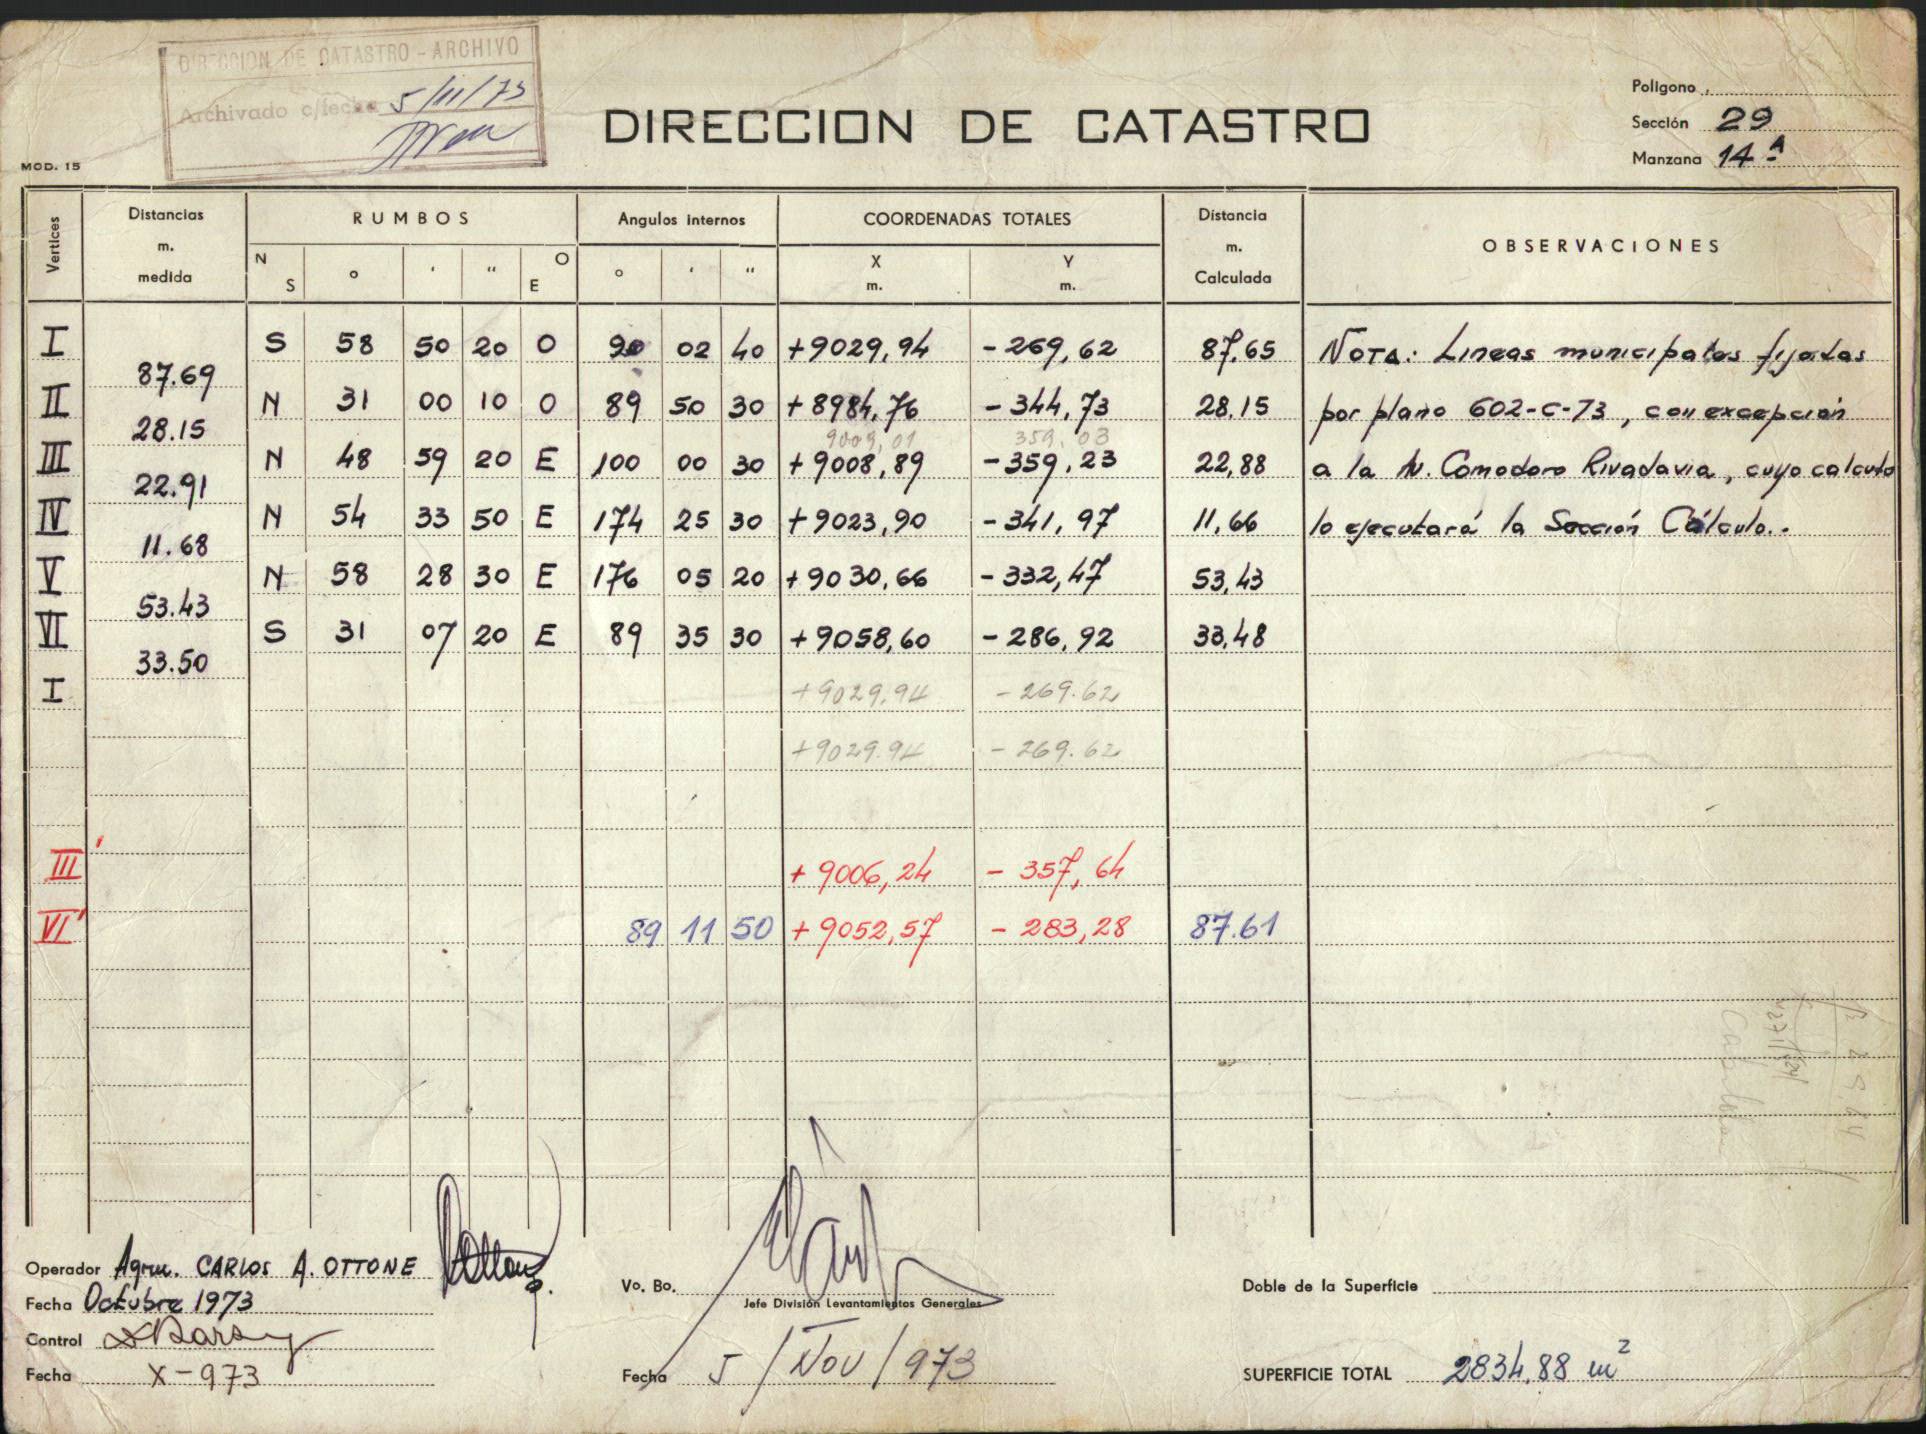 DIRECCION DE CATASTRO - ARCHIVO
Archivado c/fecha 5/11/73
MOD. 15
DIRECCION DE CATASTRO
Poligono
Sección 29
Manzana 14 A
Vertices Distancias m. medida RUMBOS Angulos internos COORDENADAS TOTALES Distancia m. Calculada OBSERVACIONES
N S ° ' " O E ° ' " X m. Y m.
I S 58 50 20 O 90 02 40 +9029,94 -269,62 87,65 NOTA: Lineas municipales fijadas
87.69
II N 31 00 10 O 89 50 30 +8984,76 -344,73 28,15 por plano 602-C-73, con excepción
28.15
9009,01 359,03
III N 48 59 20 E 100 00 30 +9008,89 -359,23 22,88 a la Av. Comodoro Rivadavia, cuyo calculo
22.91
IV N 54 33 50 E 174 25 30 +9023,90 -341,97 11,66 lo ejecutará la Sección Cálculo..
11.68
V N 58 28 30 E 176 05 20 +9030,66 -332,47 53,43
53.43
VI S 31 07 20 E 89 35 30 +9058,60 -286,92 33,48
33.50
I +9029,94 -269.62
+9029.94 -269.62
III' +9006,24 -357,64
VI' 89 11 50 +9052,57 -283,28 87.61
Operador Agrm. CARLOS A. OTTONE
Fecha Octubre 1973
Control
Fecha X-973
Vo. Bo.
Jefe División Levantamientos Generales
Fecha 5/NOV/973
Doble de la Superficie
SUPERFICIE TOTAL 2834,88 m²